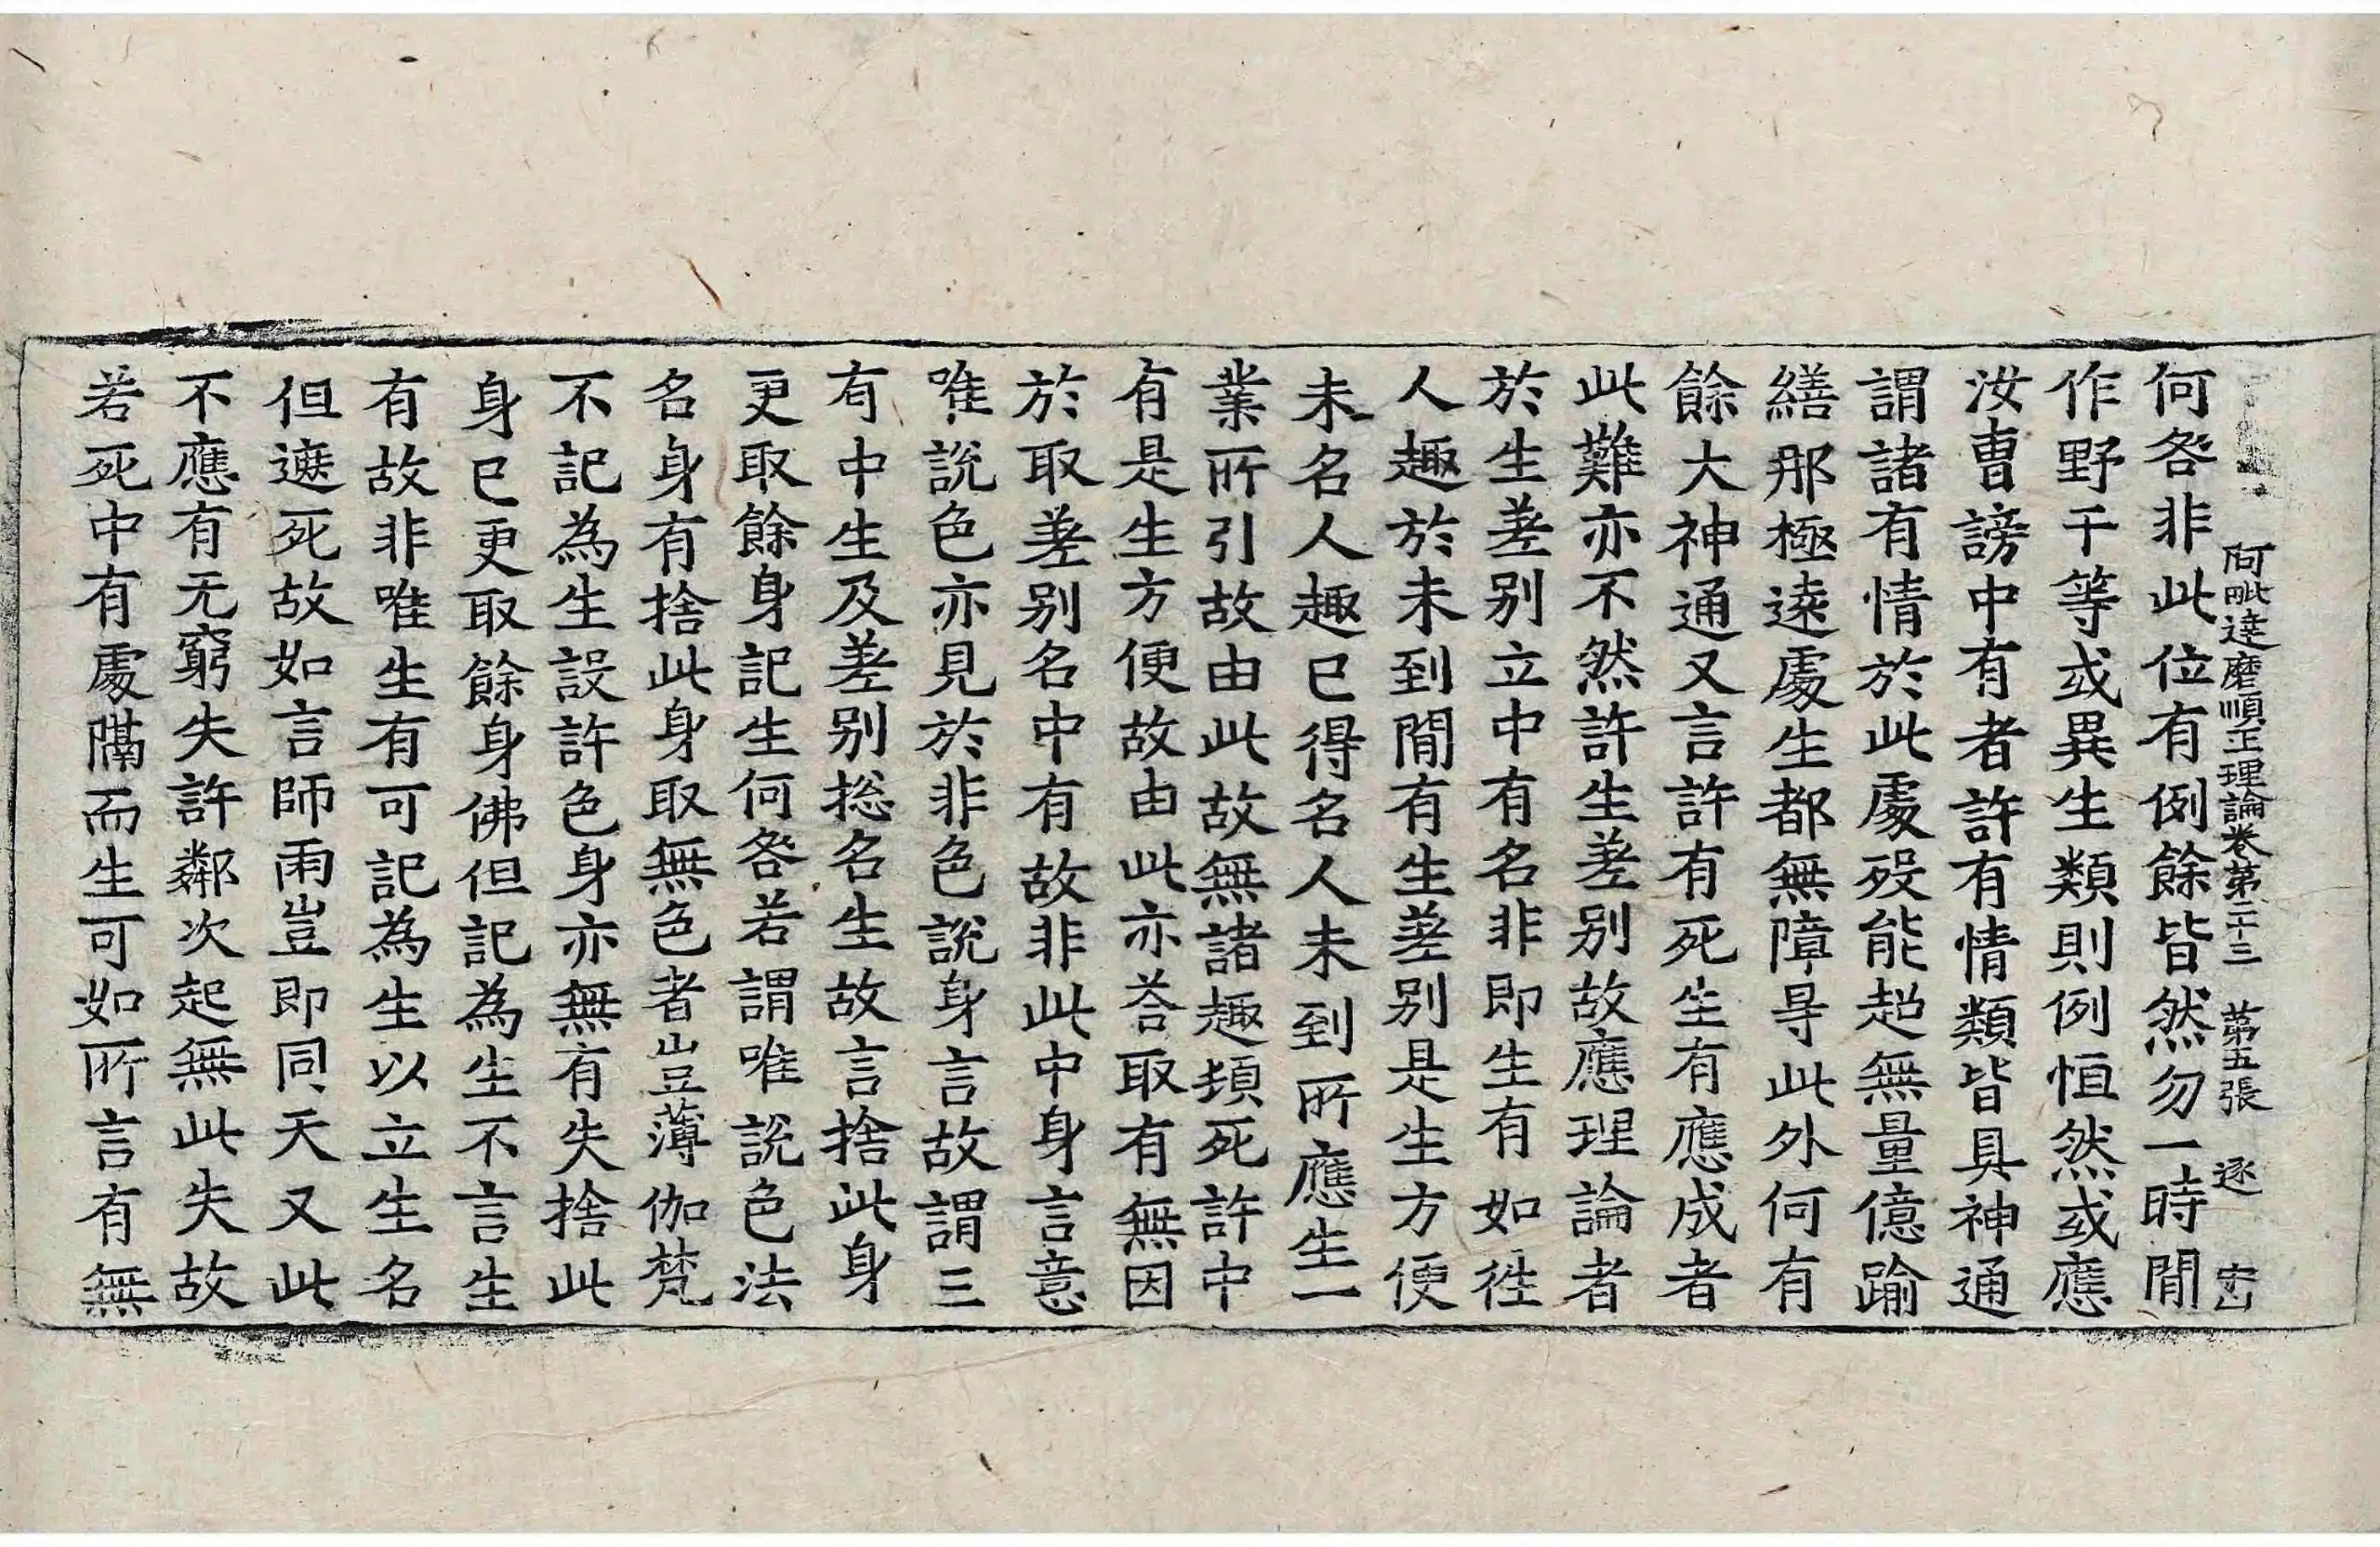 阿毗達磨順正理論卷第二十三 第五張 逐
何咎非此位有例餘皆然勿一時閒
作野干等或異生類則例恒然或應
汝曹謗中有者許有情類皆具神通
謂諸有情於此處歿能超無量億踰
繕那極遠處生都無障㝵此外何有
餘大神通又言許有死生有應成者
此難亦不然許生差別故應理論者
於生差別立中有名非即生有如徃
人趣於未到閒有生差別是生方便
未名人趣已得名人未到所應生一
業所引故由此故無諸趣頻死許中
有是生方便故由此亦荅取有無因
於取差別名中有故非此中身言意
唯說色亦見於非色說身言故謂三
有中生及差別揔名生故言捨此身
更取餘身記生何咎若謂唯說色法
名身有捨此身取無色者豈薄伽梵
不記為生設許色身亦無有失捨此
身已更取餘身佛但記為生不言生
有故非唯生有可記為生以立生名
但遮死故如言師雨豈即同天又此
不應有无窮失許鄰次起無此失故
若死中有處隔而生可如所言有無